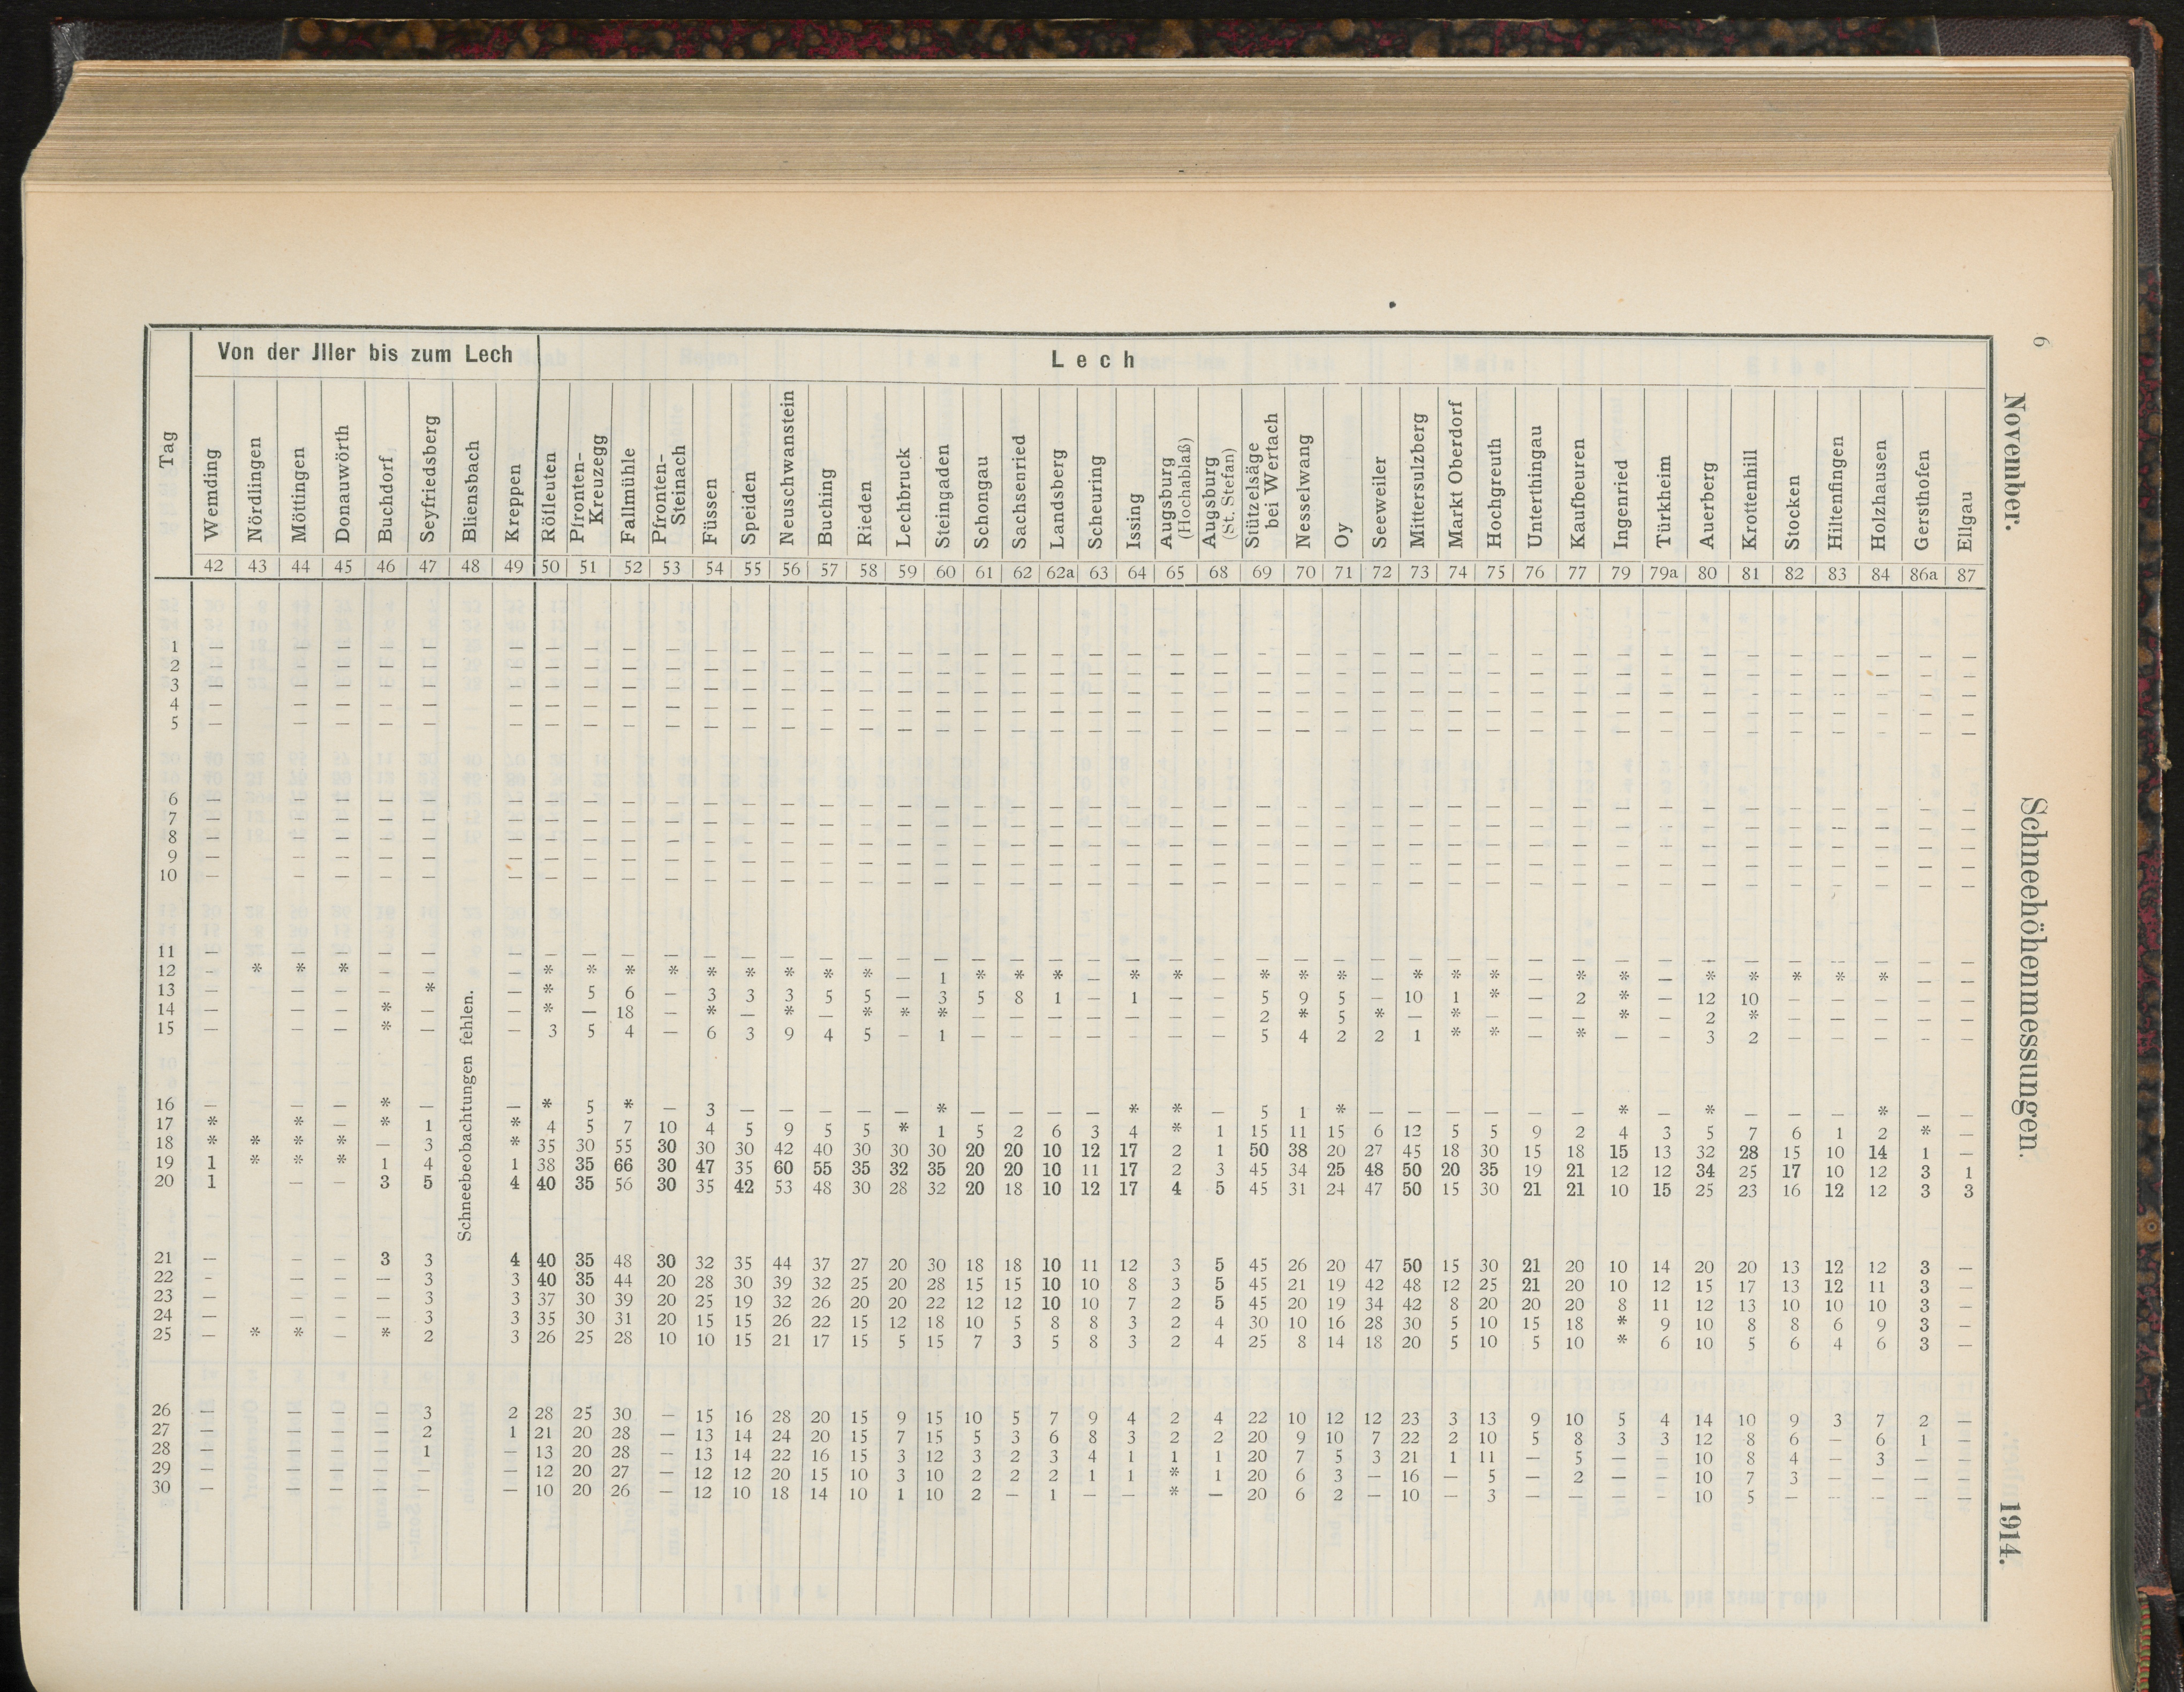 6
November. Schneehöhenmessungen. 1914.
Tag | Von der Jller bis zum Lech | Lech
Wemding | Nördlingen | Möttingen | Donauwörth | Buchdorf | Seyfriedsberg | Bliensbach | Kreppen | Rölleuten | Pfronten-Kreuzegg | Fallmühle | Pfronten-Steinach | Füssen | Speiden | Neuschwanstein | Buching | Rieden | Lechbruck | Steingaden | Schongau | Sachsenried | Landsberg | Scheuring | Issing | Augsburg (Hochablaß) | Augsburg (St. Stefan) | Stützelsäge bei Wertach | Nesselwang | Oy | Seeweiler | Mittersulzberg | Markt Oberdorf | Hochgreuth | Unterthingau | Kaufbeuren | Ingenried | Türkheim | Auerberg | Krottenhill | Stocken | Hiltenfingen | Holzhausen | Gersthofen | Ellgau
42 43 44 45 46 47 48 49 50 51 52 53 54 55 56 57 58 59 60 61 62 62a 63 64 65 68 69 70 71 72 73 74 75 76 77 79 79a 80 81 82 83 84 86a 87
Schneebeobachtungen fehlen.
1 — — — — — — — — — — — — — — — — — — — — — — — — — — — — — — — — — — — — — — — — — —
2 — — — — — — — — — — — — — — — — — — — — — — — — — — — — — — — — — — — — — — — — — —
3 — — — — — — — — — — — — — — — — — — — — — — — — — — — — — — — — — — — — — — — — — —
4 — — — — — — — — — — — — — — — — — — — — — — — — — — — — — — — — — — — — — — — — — —
5 — — — — — — — — — — — — — — — — — — — — — — — — — — — — — — — — — — — — — — — — — —
6 — — — — — — — — — — — — — — — — — — — — — — — — — — — — — — — — — — — — — — — — — —
7 — — — — — — — — — — — — — — — — — — — — — — — — — — — — — — — — — — — — — — — — — —
8 — — — — — — — — — — — — — — — — — — — — — — — — — — — — — — — — — — — — — — — — — —
9 — — — — — — — — — — — — — — — — — — — — — — — — — — — — — — — — — — — — — — — — — —
10 — — — — — — — — — — — — — — — — — — — — — — — — — — — — — — — — — — — — — — — — — —
11 — — — — — — — — — — — — — — — — — — — — — — — — — — — — — — — — — — — — — — — — — —
12 — * * * — — — * * * * * * * * * — 1 * * * — * * — * * * — * * * — * * — * * * * * — —
13 — — — — * — * 5 6 — 3 3 3 5 5 — 3 5 8 1 — 1 — — 5 9 5 — 10 1 * — 2 * — 12 10 — — — — —
14 — — — * — — * — 18 — * — * — * * * — — — — — — — 2 * 5 * — * — — — * — 2 * — — — — —
15 — — — * — — 3 5 4 — 6 3 9 4 5 — 1 — — — — — — — 5 4 2 2 1 * * — * — — 3 2 — — — — —
16 — — — * — — * 5 * — 3 — — — — — * — — — — * * — 5 1 * — — — — — — * — * — — — * — —
17 * * — * 1 * 4 5 7 10 4 5 9 5 5 * 1 5 2 6 3 4 * 1 15 11 15 6 12 5 5 9 2 4 3 5 7 6 1 2 * —
18 * * * * — 3 * 35 30 55 30 30 30 42 40 30 30 30 20 20 10 12 17 2 1 50 38 20 27 45 18 30 15 18 15 13 32 28 15 10 14 1 —
19 1 * * * 1 4 1 38 35 66 30 47 35 60 55 35 32 35 20 20 10 11 17 2 3 45 34 25 48 50 20 35 19 21 12 12 34 25 17 10 12 3 1
20 1 — — 3 5 4 40 35 56 30 35 42 53 48 30 28 32 20 18 10 12 17 4 5 45 31 24 47 50 15 30 21 21 10 15 25 23 16 12 12 3 3
21 — — — 3 3 4 40 35 48 30 32 35 44 37 27 20 30 18 18 10 11 12 3 5 45 26 20 47 50 15 30 21 20 10 14 20 20 13 12 12 3 —
22 — — — — 3 3 40 35 44 20 28 30 39 32 25 20 28 15 15 10 10 8 3 5 45 21 19 42 48 12 25 21 20 10 12 15 17 13 12 11 3 —
23 — — — — 3 3 37 30 39 20 25 19 32 26 20 20 22 12 12 10 10 7 2 5 45 20 19 34 42 8 20 20 20 8 11 12 13 10 10 10 3 —
24 — — — — 3 3 35 30 31 20 15 15 26 22 15 12 18 10 5 8 8 3 2 4 30 10 16 28 30 5 10 15 18 * 9 10 8 8 6 9 3 —
25 — * * — * 2 3 26 25 28 10 10 15 21 17 15 5 15 7 3 5 8 3 2 4 25 8 14 18 20 5 10 5 10 * 6 10 5 6 4 6 3 —
26 — — — — 3 2 28 25 30 — 15 16 28 20 15 9 15 10 5 7 9 4 2 4 22 10 12 12 23 3 13 9 10 5 4 14 10 9 3 7 2 —
27 — — — — 2 1 21 20 28 — 13 14 24 20 15 7 15 5 3 6 8 3 2 2 20 9 10 7 22 2 10 5 8 3 3 12 8 6 — 6 1 —
28 — — — — 1 — 13 20 28 — 13 14 22 16 15 3 12 3 2 3 4 1 1 1 20 7 5 3 21 1 11 — 5 — — 10 8 4 — 3 — —
29 — — — — — — 12 20 27 — 12 12 20 15 10 3 10 2 2 2 1 1 * 1 20 6 3 — 16 — 5 — 2 — — 10 7 3 — — — —
30 — — — — — — 10 20 26 — 12 10 18 14 10 1 10 2 — 1 — — * — 20 6 2 — 10 — 3 — — — — 10 5 — — — — —